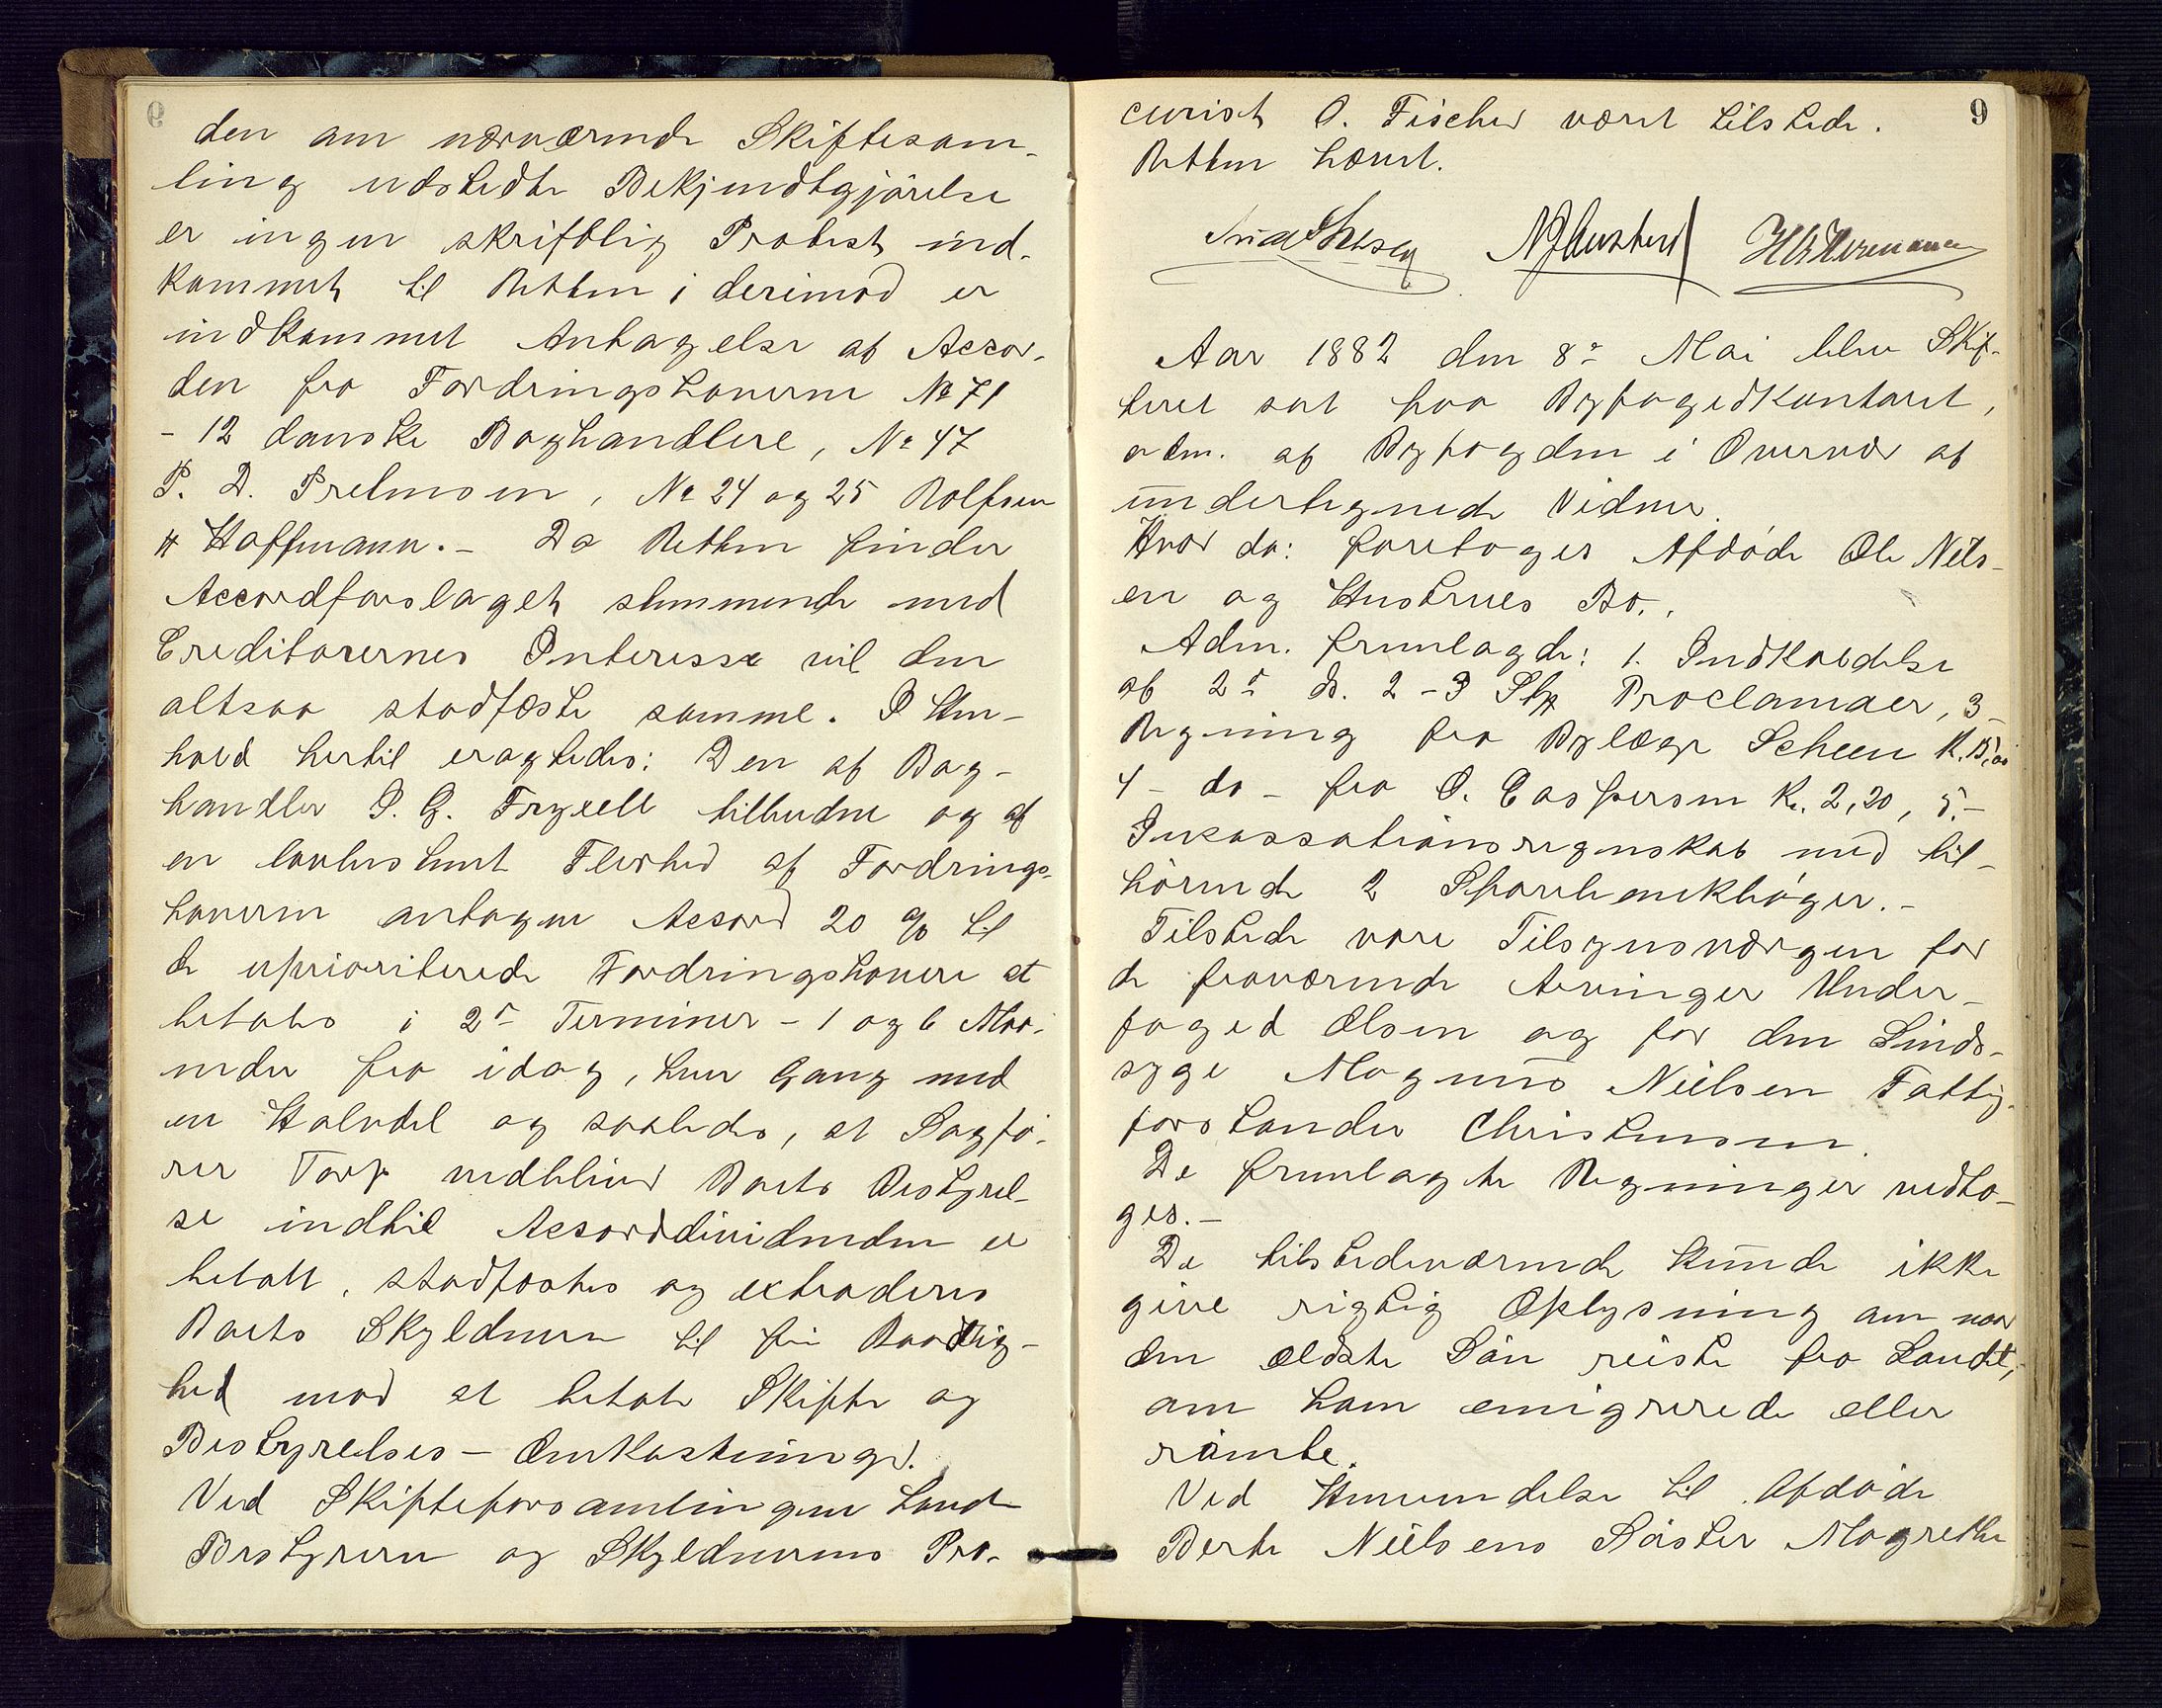 den om nærværende Skiftesam-
ling udstedte Bekjendtgjørelse
er ingen skriftlig Protest ind-
kommet til Retten; derimod er
indkommet Antagelse af Accor-
den fra Fordringshaverne No 71
- 12 danske Boghandlere, No 47
P. D. No 24 og 25 Rolfsen
& Hoffmann. - Da Retten finder
Accordforslaget stemmende med
Creditorernes Interesse vil den
altsaa stadfæste samme. I Hen-
hold hertil eragtedes: Den af Bog-
handler P. G. Fryxell tilbudne og af
en lovbestemt Flerhed af Fordrings-
haverne antagne Accord 20 % til
de uprioriterede Fordringshavere at
betales i 2de Terminer - 1 og 6 Maa-
neder fra idag, hver Gang med
en Halvdel og saaledes, at Sagfø-
rer Torp vedbliver Boets Bestyrel-
se indtil Accorddividenden er
betalt, stadfæstes og extraderes
Boets Skyldneren til fri Raadig-
hed mod at betale Skifte og
Bestyrelses - Omkostninger.
Ved Skifteforsamlingen havde
Bestyreren og Skyldnerens Pro-
9
curist O. Fischer været tilstede.
Retten hævet.
Aar 1882 den 8de Mai blev Skif-
teret sat paa Byfogedkontoret,
adm. af Byfogden i Overvær af
undertegnede Vidner.
Hvor da: foretoges Afdøde Ole Niels-
en og Hustrues Bo.
Adm. fremlagde: 1. Indkaldelse
af 2de ds. 2 - 3 Stk Proclamaer, 3 -
Regning fra Bylæge Scheen
4 - do - fra O. Caspersen Kr. 2,20, 5. -
Incassationsregnskab med til-
hørende 2 Sparebankbøger. -
Tilstede vare Tilsynsværgen for
de fraværende Arvinger Under-
foged Olsen og for den Sinds-
syge Magnus Nielsen Fattig-
forstander Christensen.
De fremlagte Regninger vedto-
ges. -
De tilstedeværende kunde ikke
give rigtig Oplysning om naar
den ældste Søn reiste fra Landet,
om ham emigrerede eller
rømte.
Ved Henvendelse til Afdøde
Berte Nielsens Søster Magrethe